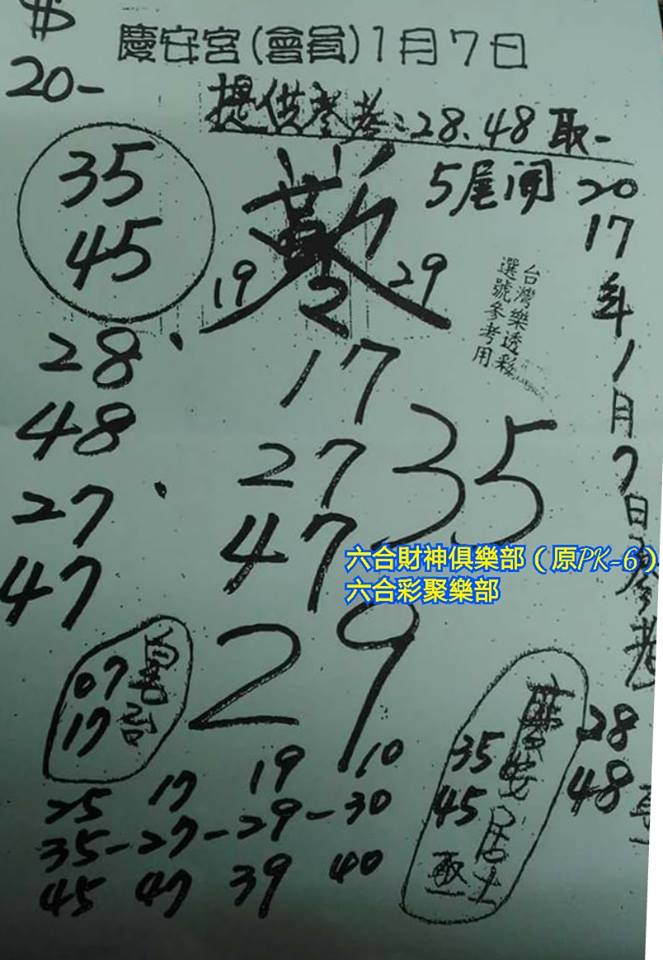 $
20-
慶安宮(會員)1月7日
提供參考:28.48取一
5尾開
35
45
19 29
台灣樂透彩
選號參考用
2017年1月7日參考
28
48
27
47
17
27
47
35
六合財神俱樂部（原PK-6）
六合彩聚樂部
29
07
17
25 17 19 10
35-27-29-30
45 47 39 40
35
45
居士
28
48